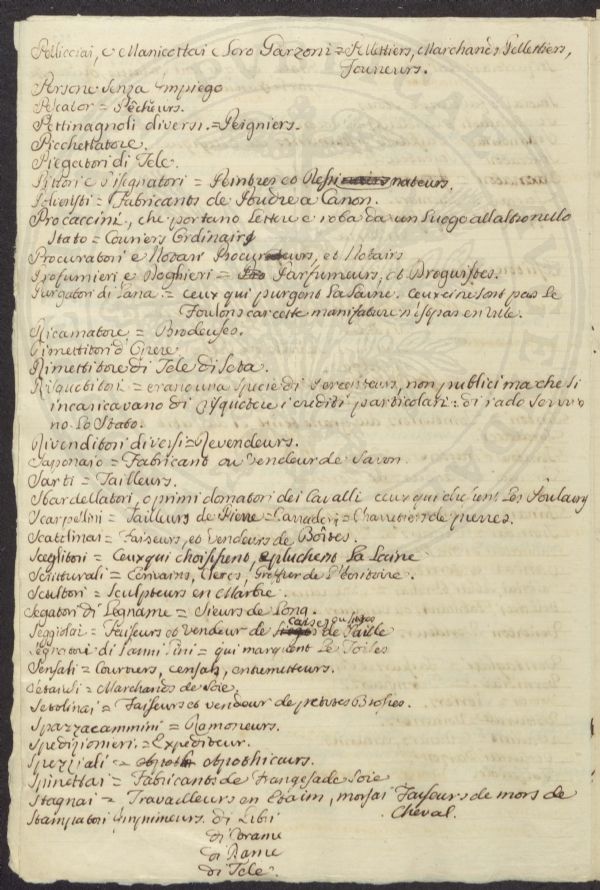 Pellicciai, e Manicottai e Loro Garzoni = Pellettiers, Marchands Pellettiers,
Foureurs.
Persone Senza Impiego
Pescator = Pêcheurs.
Pettinagnoli diversi = Peigniers.
Picchettatore.
Piegatori di Tele.
Pittori e Disegnatori = Peintres et Dessinateurs.
Polveristi = Fabricants de Poudre a Canon.
Procaccini, che portano Lettere e roba da un Luogo all'altro nello
Stato = Couriers Ordinairs
Procuratori e Notari Procureurs, et Notairs
Profumieri e Droghieri = Parfumeurs, et Droguistes.
Purgatori di Lana = ceux qui purgent La Laine. ceux ci ne sont pas Le
Foulons car cette manifature n'est pas en Ville.
Ricamatore = Brodeuses.
Rimettitori d'Opere
Rimettitore di Tele di Seta.
Risquotitori = erano una Specie di Percepteurs, non publici ma che si
incaricavano di Risquotere i crediti particolari: di rado servivano Lo Stato.
Rivenditori diversi = Revendeurs.
Saponaio = Fabricant ou Vendeur de Savon.
Sarti = Tailleurs.
Sbardellatori, o primi domatori dei Cavalli ceux qui Les Poulains
Scarpelini = Tailleurs de Pierre = Carradori = Charretiers de pierres.
Scatolinai = Faiseurs, et Vendeurs de Boîtes.
Sceglitori = Ceux qui choisissent, epluchent La Laine
Scritturali = Ecrivains, Clercs, Greffier de L'Ecritoire.
Scultori = Sculpteurs en Marbre.
Segatori di Legname = Sieurs de Long.
Seggiolai = Faiseurs et Vendeur de caises ou sieges de Paille
Segnatori di Panni Lini = qui marquent Les Toiles
Sensali = Courtiers, censals, entremetteurs.
Setaioli = Marchands de Soie.
Setolinai = Faiseurs et vendeur de petites Brosses.
Spazzacammini = Ramoneurs.
Spedizionieri = Expediteur.
Speziali = Apothicaurs.
Spinettai = Fabricants de Franges de Soie
Stagnai = Travailleurs en Etaim, morsai Faiseurs de mors de
Cheval.
Stampatori Imprimeurs. di Libi
di Corame
di Rame
di Tele.